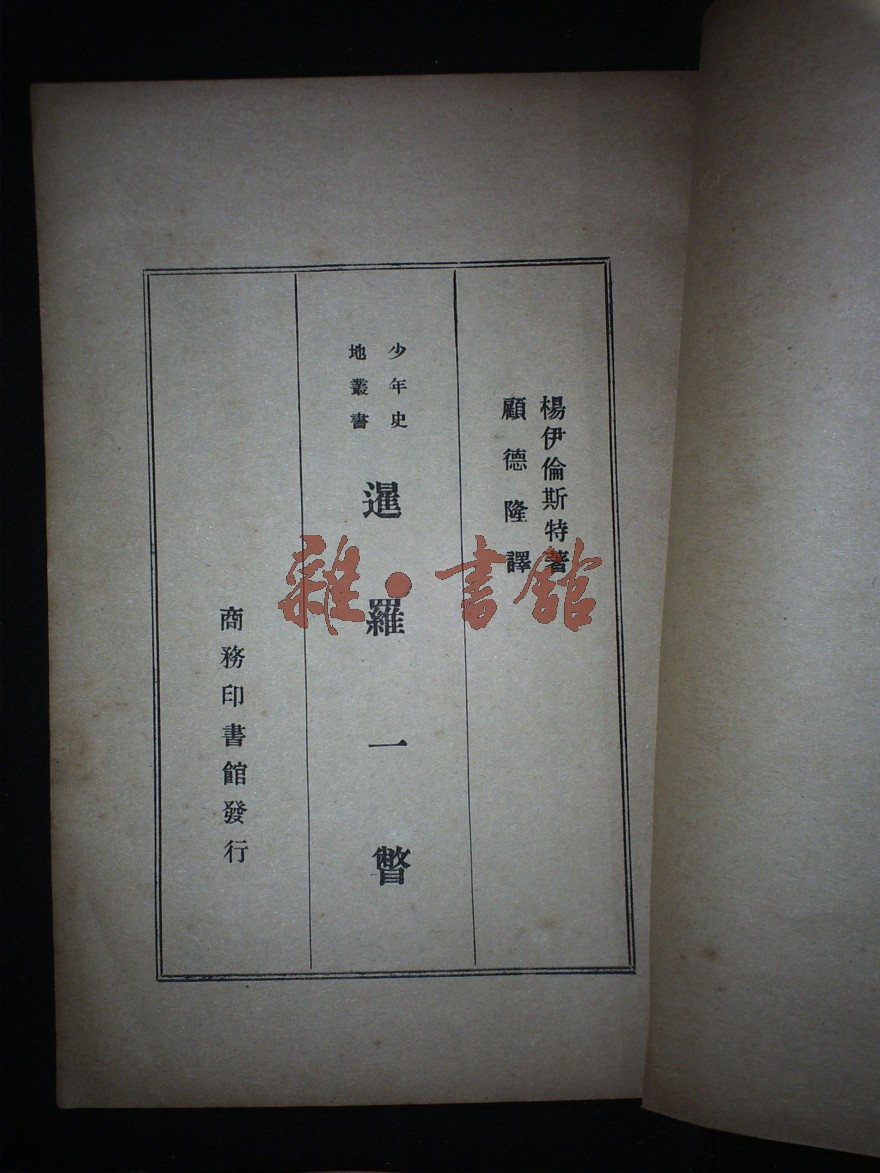 楊伊倫斯特著
顧德隆譯
少年史
地叢書
暹羅一瞥
商務印書館發行
雜·書館